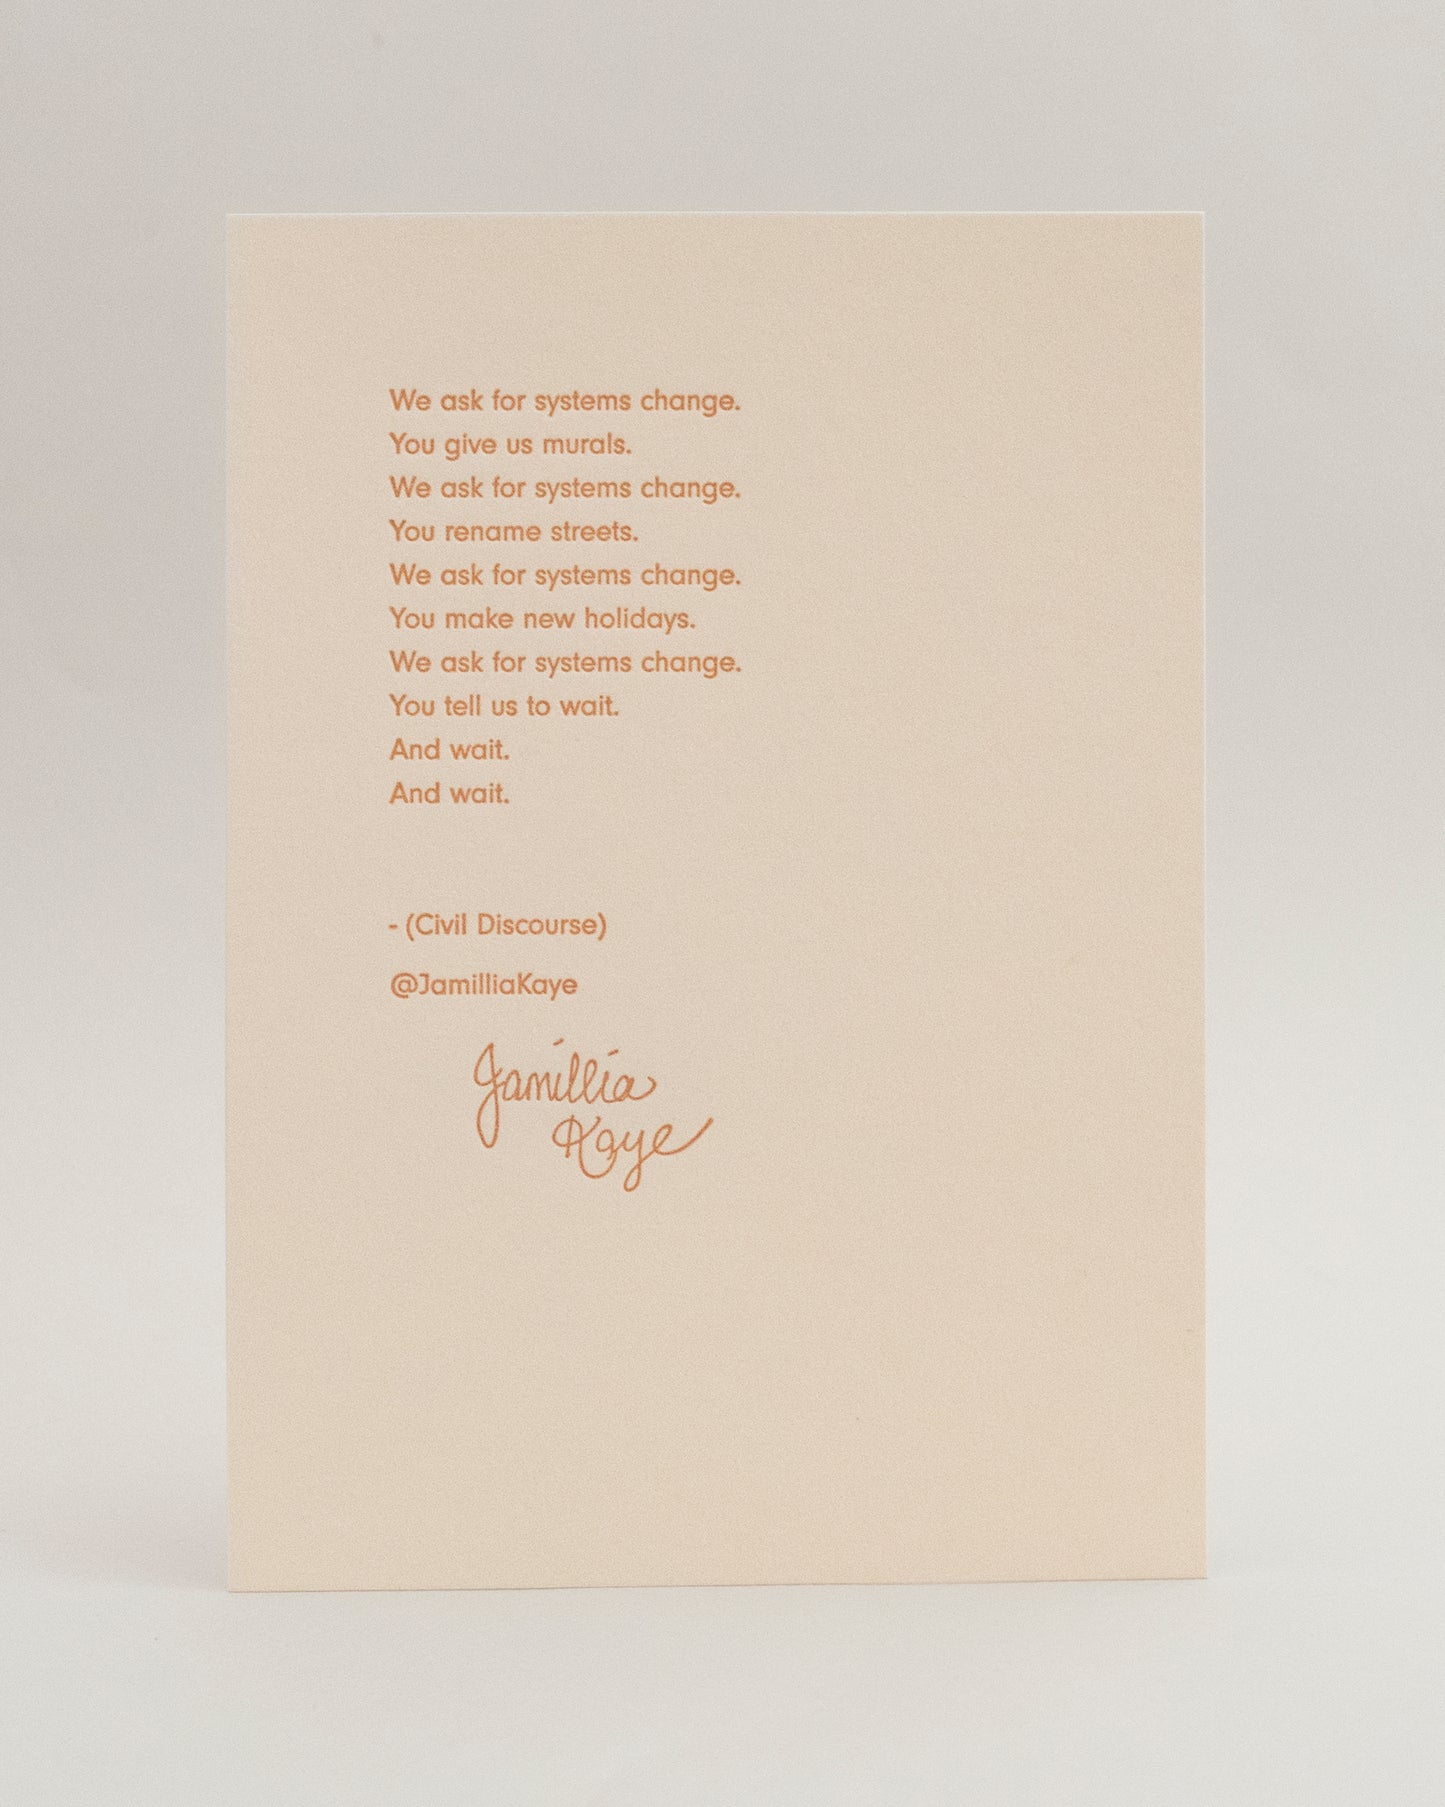 We ask for systems change.
You give us murals.
We ask for systems change.
You rename streets.
We ask for systems change.
You make new holidays.
We ask for systems change.
You tell us to wait.
And wait.
And wait.
- (Civil Discourse)
@JamilliaKaye
Jamillia
Kaye